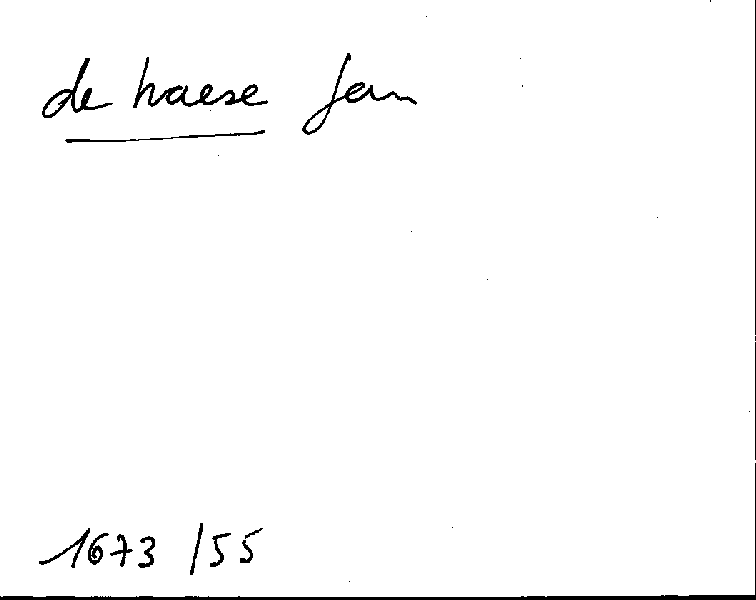 de haese Jan
1673 /55